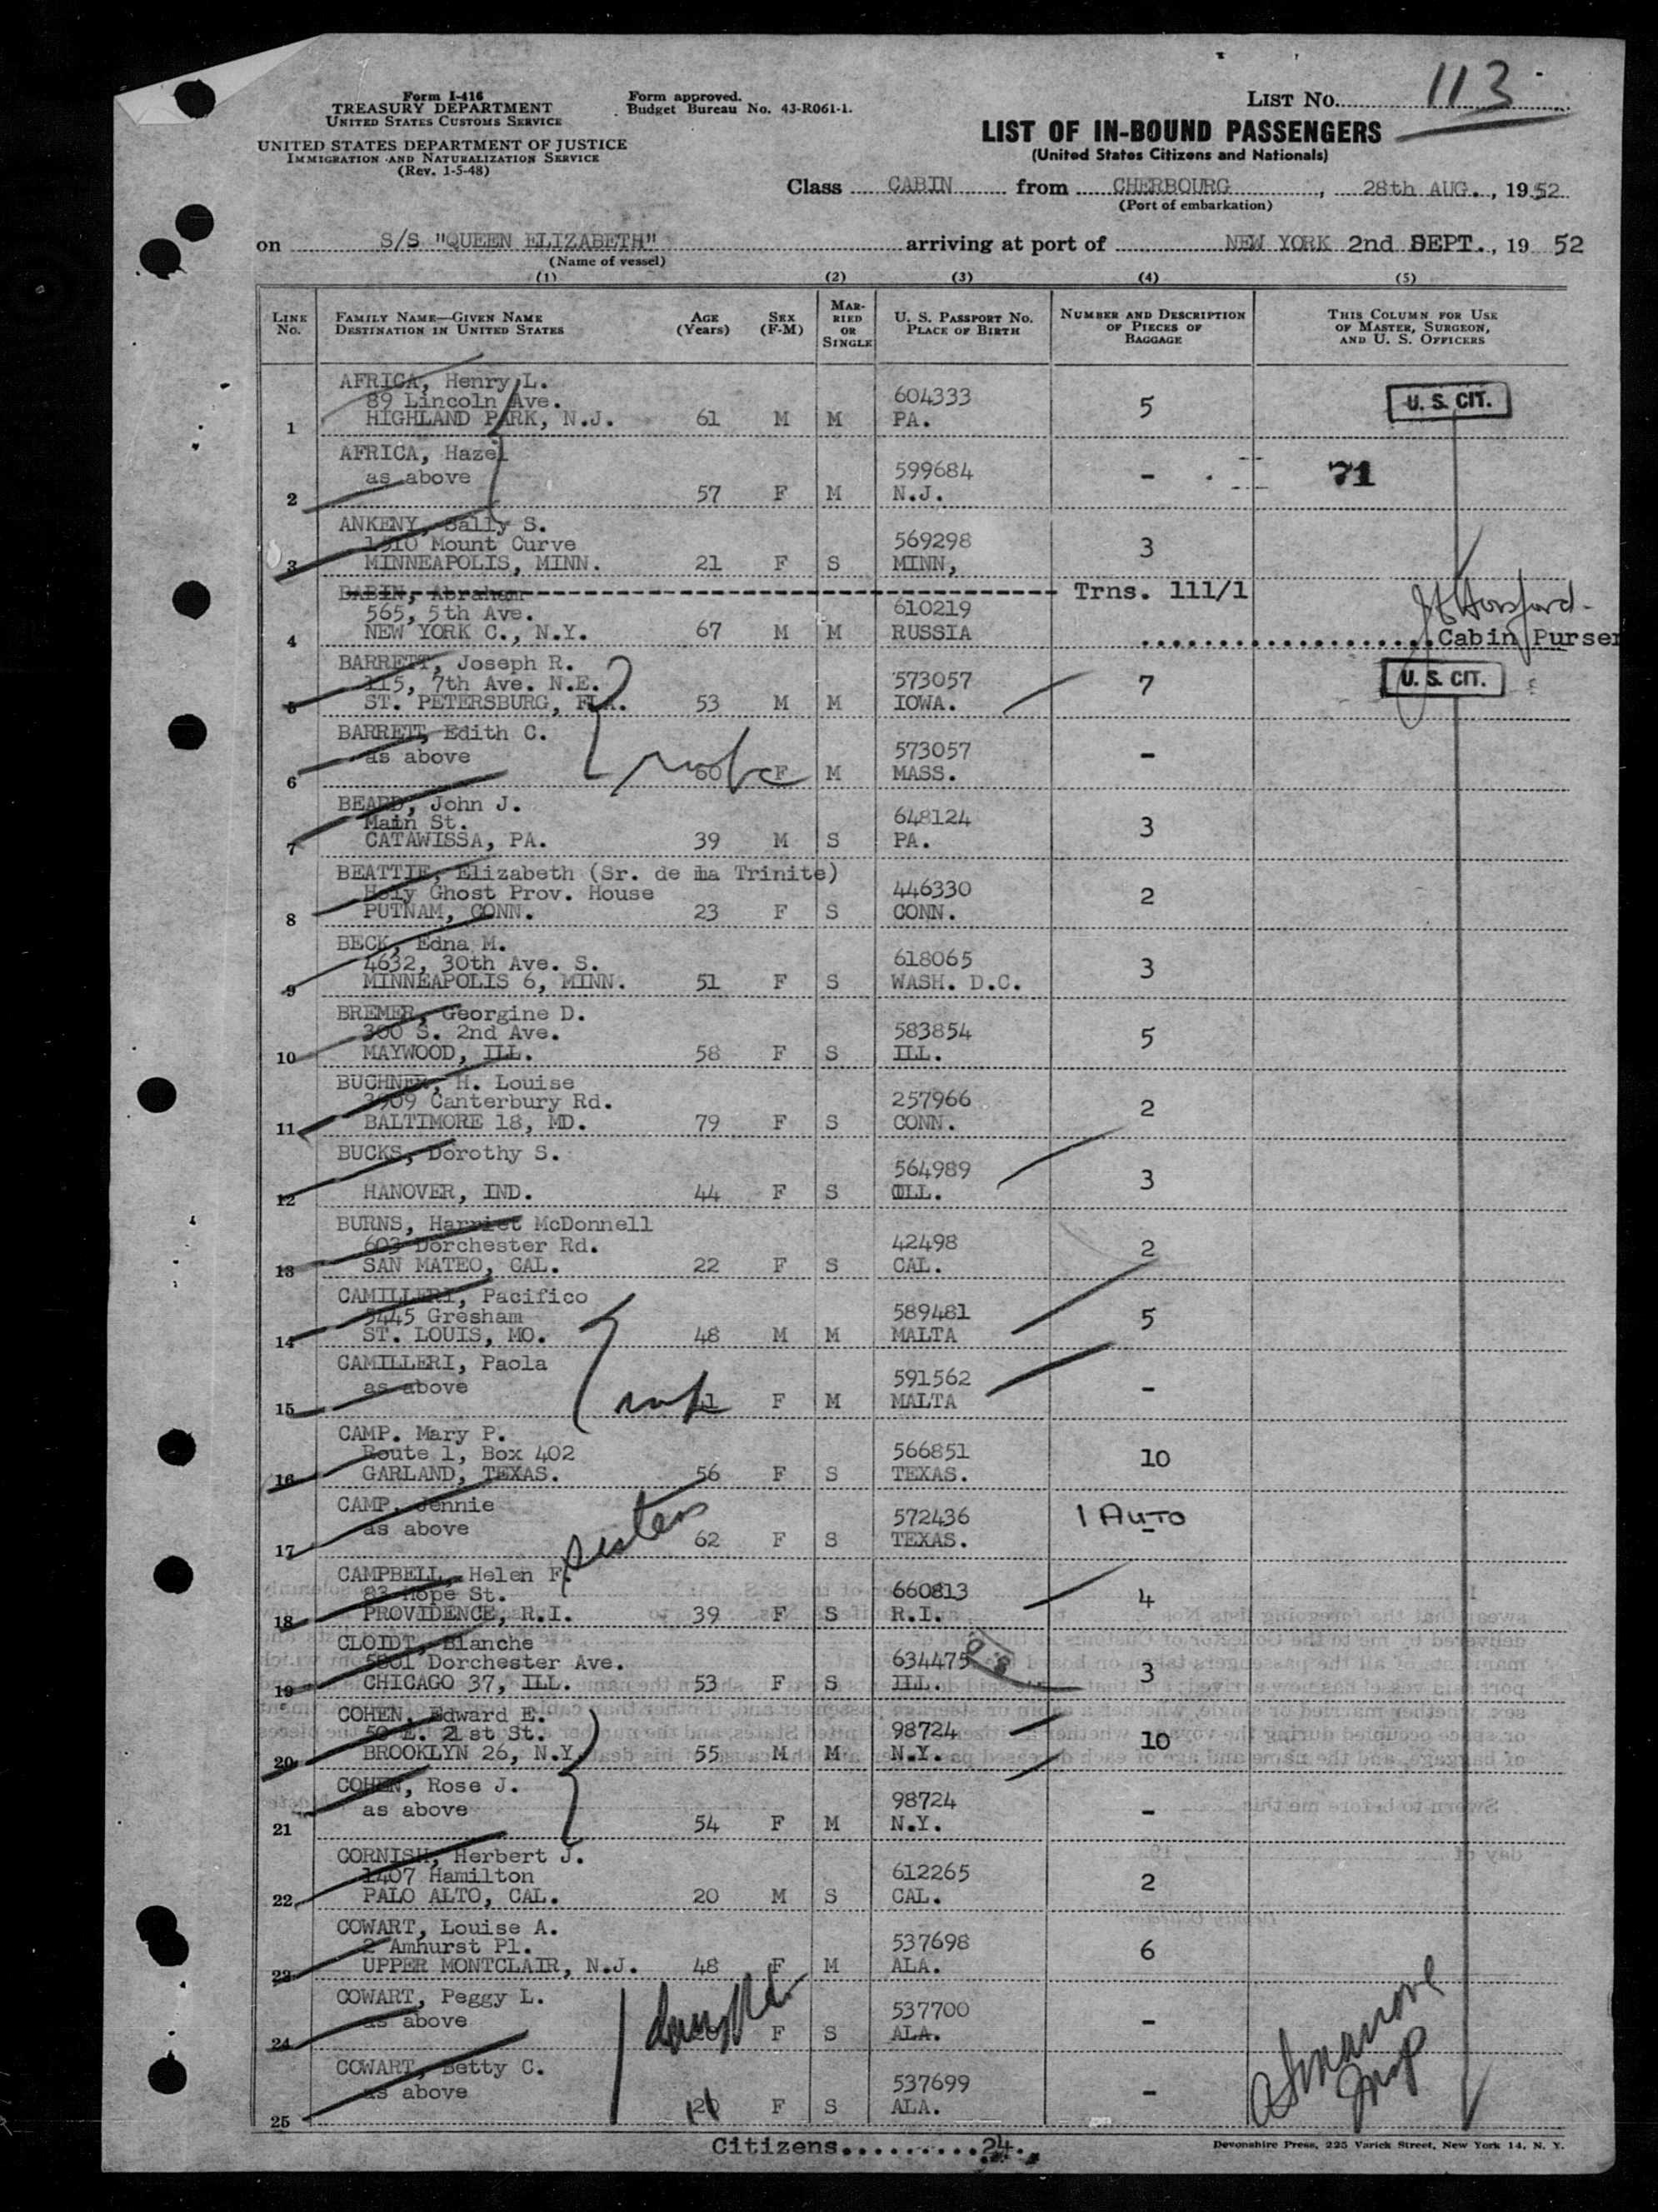 Form I-416
TREASURY DEPARTMENT
UNITED STATES CUSTOMS SERVICE
UNITED STATES DEPARTMENT OF JUSTICE
IMMIGRATION AND NATURALIZATION SERVICE
(Rev. 1-5-48)
Form approved.
Budget Bureau No. 43-R061-1.
LIST NO. 113
LIST OF IN-BOUND PASSENGERS
(United States Citizens and Nationals)
Class CABIN from CHERBOURG, 28th AUG., 1952
(Port of embarkation)
on S/S "QUEEN ELIZABETH" arriving at port of NEW YORK 2nd SEPT., 19 52
(Name of vessel)
(1) (2) (3) (4) (5)
LINE No. FAMILY NAME—GIVEN NAME DESTINATION IN UNITED STATES AGE (Years) SEX (F-M) MARRIED OR SINGLE U. S. PASSPORT NO. PLACE OF BIRTH NUMBER AND DESCRIPTION OF PIECES OF BAGGAGE THIS COLUMN FOR USE OF MASTER, SURGEON, AND U. S. OFFICERS
AFRICA, Henry L.
89 Lincoln Ave. 604333 5 U. S. CIT.
1 HIGHLAND PARK, N.J. 61 M M PA.
AFRICA, Hazel
as above 599684 - 71
2 57 F M N.J.
ANKENY, Sally S.
1510 Mount Curve 569298 3
3 MINNEAPOLIS, MINN. 21 F S MINN,
BABIN, Abraham Trns. 111/1
565, 5th Ave. 610219
4 NEW YORK C., N.Y. 67 M M RUSSIA Cabin Purser
BARRETT, Joseph R.
115, 7th Ave. N.E. 573057 7 U. S. CIT.
5 ST. PETERSBURG, FLA. 53 M M IOWA.
BARRETT, Edith C.
as above 573057 -
6 60 F M MASS.
BEARD, John J.
Main St. 648124 3
7 CATAWISSA, PA. 39 M S PA.
BEATTIE, Elizabeth (Sr. de la Trinite)
Holy Ghost Prov. House 446330 2
8 PUTNAM, CONN. 23 F S CONN.
BECK, Edna M.
4632, 30th Ave. S. 618065 3
9 MINNEAPOLIS 6, MINN. 51 F S WASH. D.C.
BREMER, Georgine D.
300 S. 2nd Ave. 583854 5
10 MAYWOOD, ILL. 58 F S ILL.
BUCHNER, H. Louise
3909 Canterbury Rd. 257966 2
11 BALTIMORE 18, MD. 79 F S CONN.
BUCKS, Dorothy S.
564989 3
12 HANOVER, IND. 44 F S ILL.
BURNS, Harriet McDonnell
603 Dorchester Rd. 42498 2
13 SAN MATEO, CAL. 22 F S CAL.
CAMILLERI, Pacifico
5445 Gresham 589481 5
14 ST. LOUIS, MO. 48 M M MALTA
CAMILLERI, Paola
as above 591562 -
15 41 F M MALTA
CAMP. Mary P.
Route 1, Box 402 566851 10
16 GARLAND, TEXAS. 56 F S TEXAS.
CAMP, Jennie
as above sisters 572436 1 AUTO -
17 62 F S TEXAS.
CAMPBELL, Helen F.
83 Hope St. 660813 4
18 PROVIDENCE, R.I. 39 F S R.I.
CLOIDT, Blanche
5801 Dorchester Ave. 634475 3
19 CHICAGO 37, ILL. 53 F S ILL.
COHEN, Edward E.
50 E. 21st St. 98724 10
20 BROOKLYN 26, N.Y. 55 M M N.Y.
COHEN, Rose J.
as above 98724 -
21 54 F M N.Y.
CORNISH, Herbert J.
1407 Hamilton 612265 2
22 PALO ALTO, CAL. 20 M S CAL.
COWART, Louise A.
2 Amhurst Pl. 537698 6
23 UPPER MONTCLAIR, N.J. 48 F M ALA.
COWART, Peggy L.
as above 537700 -
24 F S ALA.
COWART, Betty C.
as above 537699 -
25 F S ALA.
Citizens.........24.
Devonshire Press, 225 Varick Street, New York 14, N. Y.